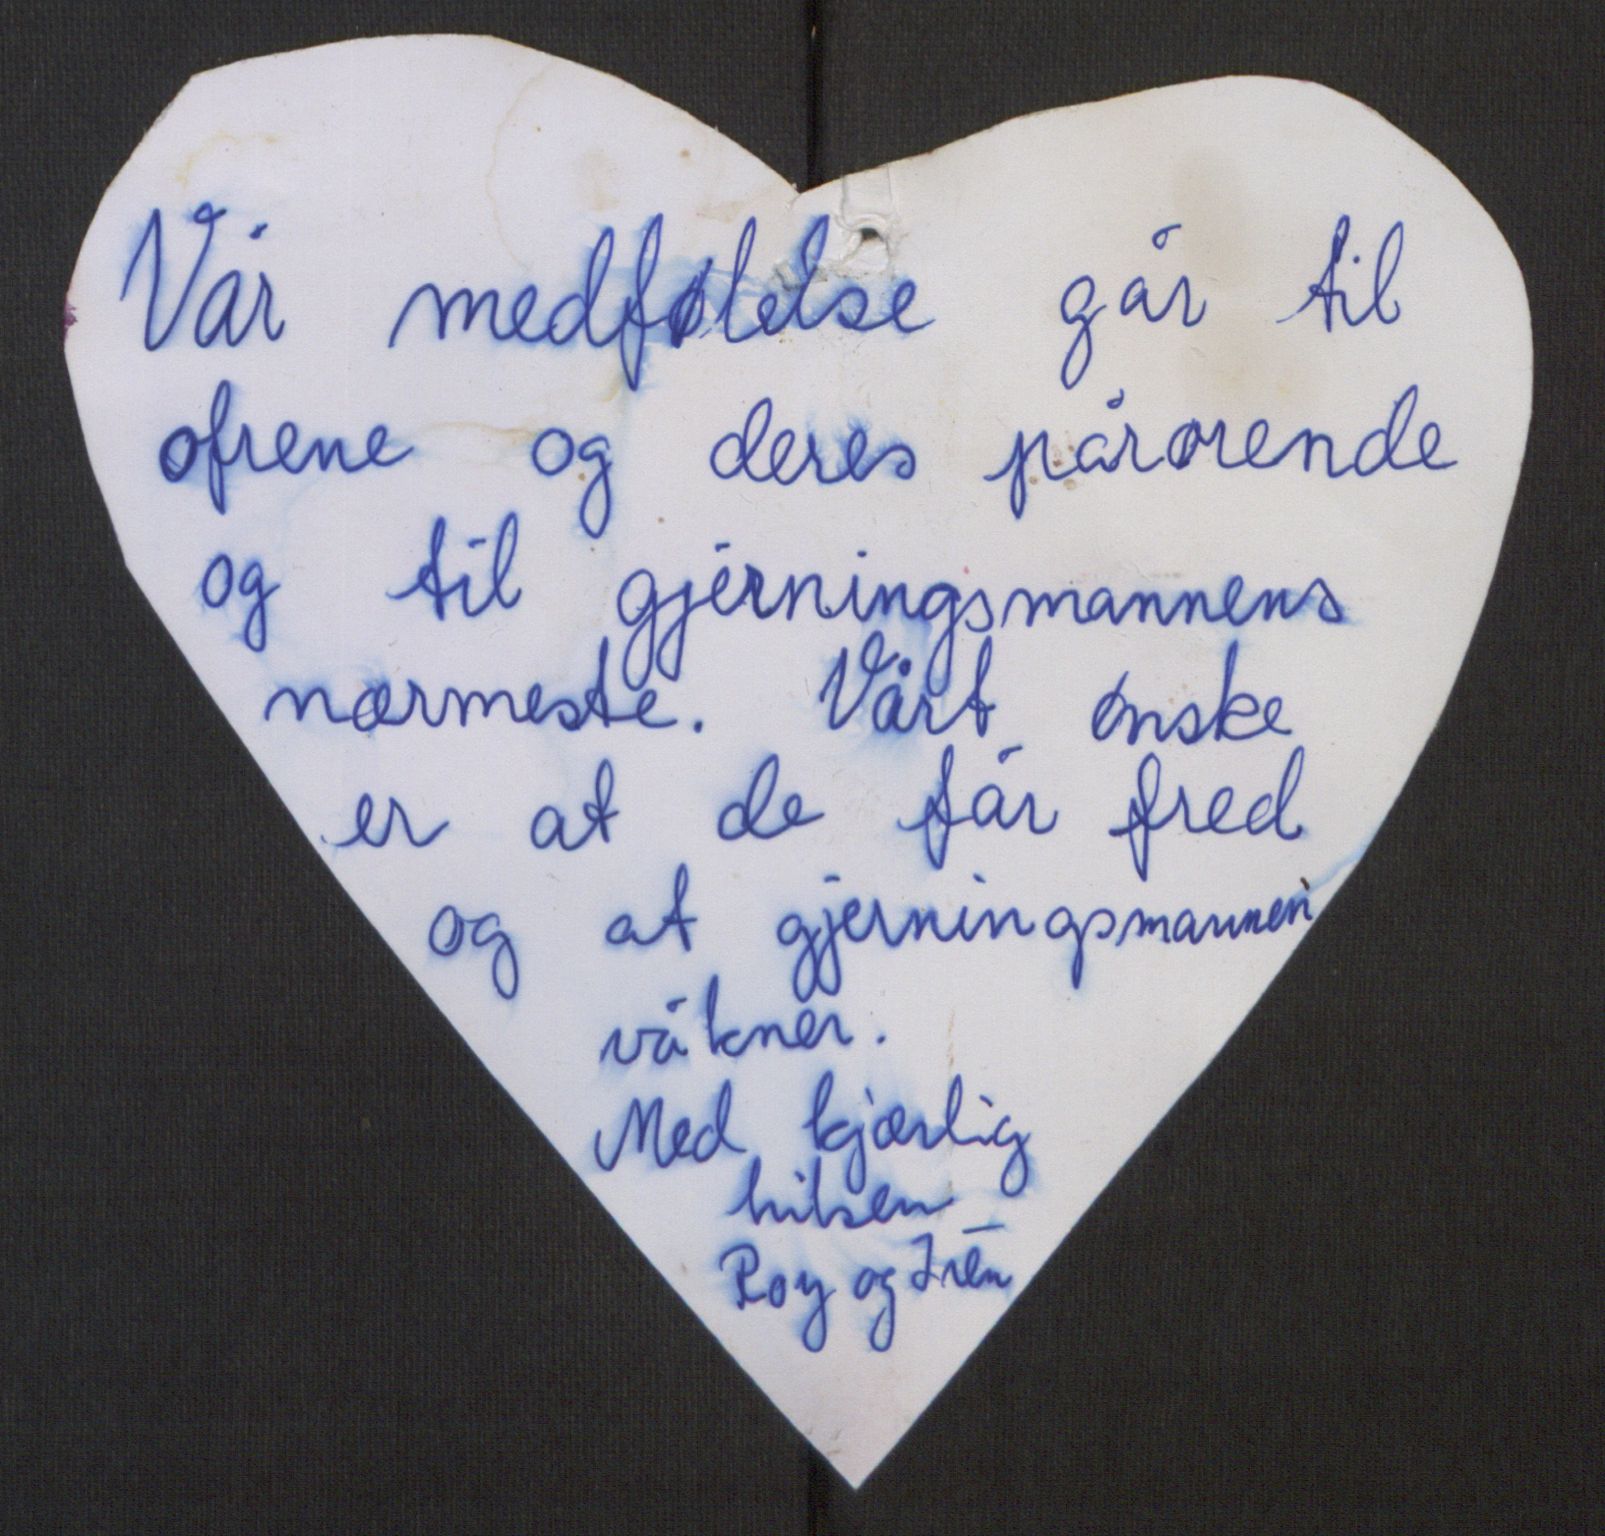 Vår medfølelse går til
ofrene og deres pårørende
og til gjerningsmannens
nærmeste. Vårt ønske
er at de får fred
og at gjerningsmannen
våkner.
Med kjærlig
hilsen
Roy og Irén